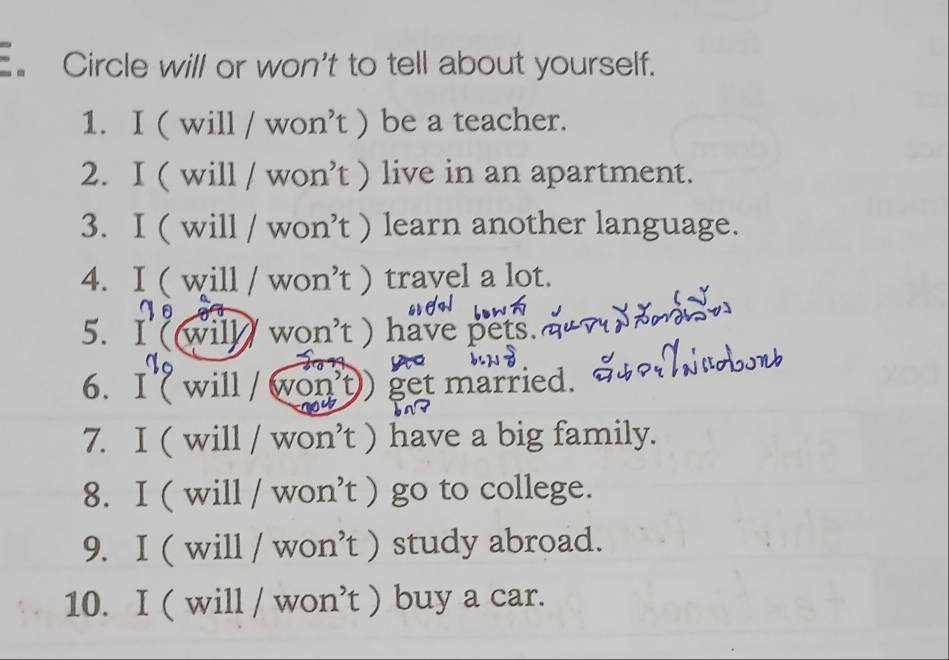 E. Circle will or won't to tell about yourself.
1. I ( will / won't ) be a teacher.
2. I ( will / won't ) live in an apartment.
3. I ( will / won't ) learn another language.
4. I ( will / won't ) travel a lot.
ไอ วิล แฮฟ เพทส
5. I ( will / won't ) have pets. ฉันจะมีสัตว์เลี้ยง
ไอ
6. I ( will / won't ) get married. ฉันจะไม่แต่งงาน
วอนท
7. I ( will / won't ) have a big family.
8. I ( will / won't ) go to college.
9. I ( will / won't ) study abroad.
10. I ( will / won't ) buy a car.